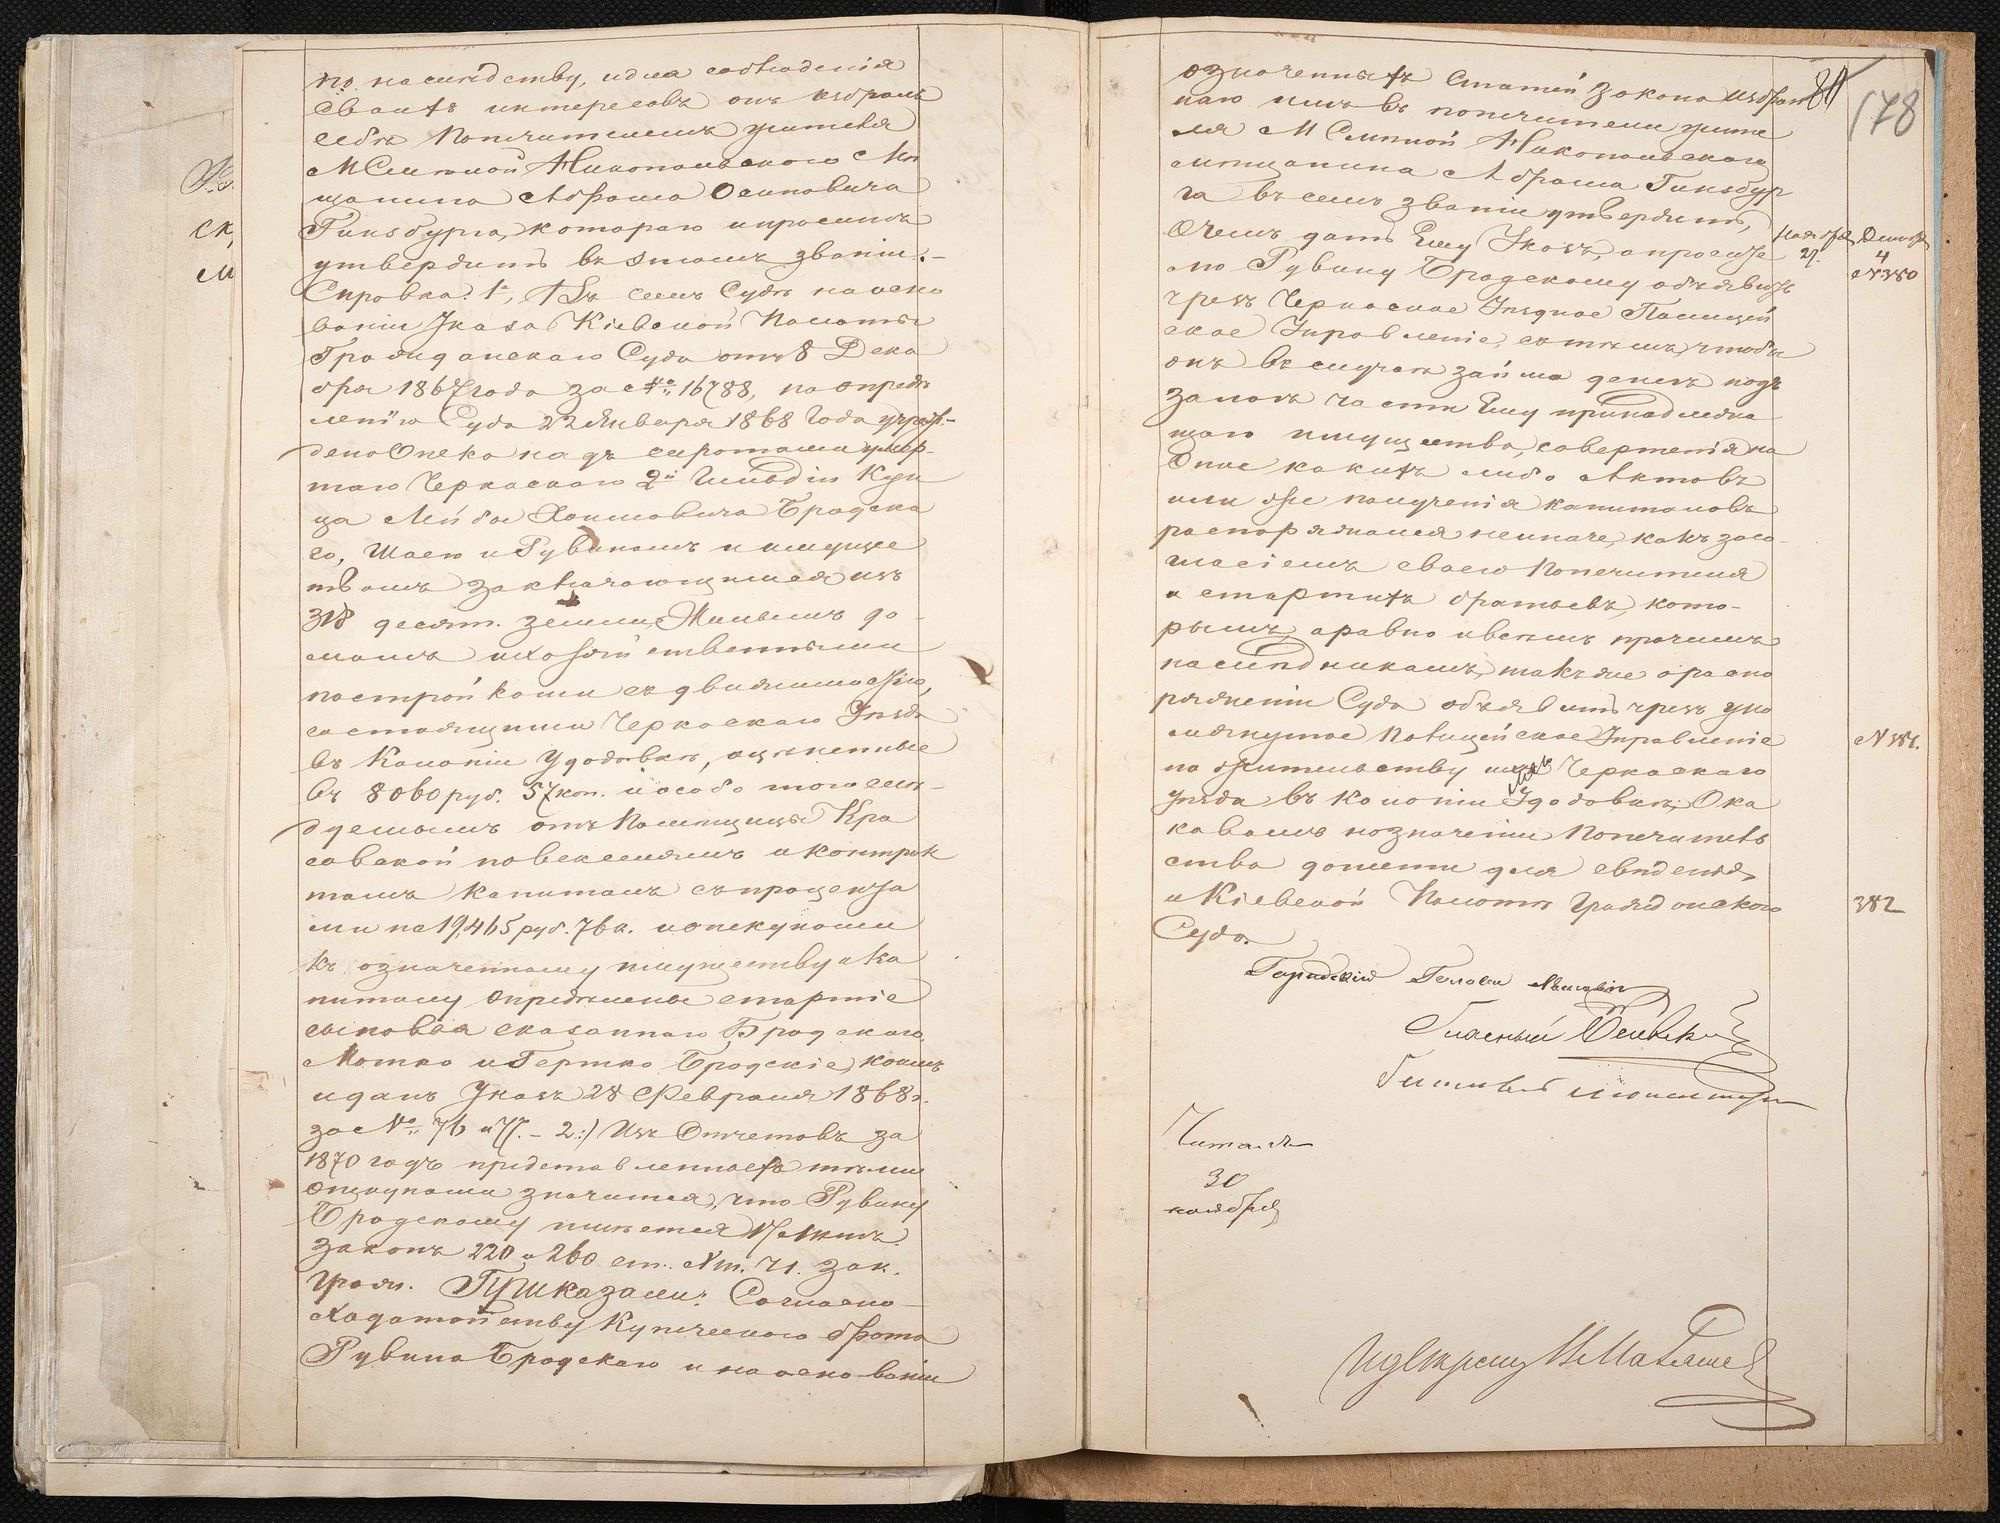 по наследству, и для соблюденія
своихъ интересовъ онъ избралъ
себѣ Попечителемъ жителя
М Смѣлой Никопольского Мѣ
щанина Абрама Осиповича
Гинзбурга, котораго и проситъ
утвердить въ этомъ званіи.–
Справка: 1е, Въ семъ Судѣ на осно
ваніи Указа Кіевской Палаты
Гражданскаго Суда отъ 8 Дека
бря 1867 года за № 16788, по опредѣ
ленію Суда 22 Января 1868 года учреж-
дена Опека надъ сиротами умер-
шаго Черкаскаго 2й Гильдіи Куп
ца Лейбы Хаимовича Бродска
го, Шаею и Рувиномъ и имуще
твомъ заключающимся изъ
318 десят. земли, Жилымъ до-
момъ и хозяйственными
постройками съ движимостію,
состоящими Черкаскаго Уѣзда
въ Колоніи Удодовкѣ, оцѣненные
въ 8060 руб. 57 коп. и особо тоже слѣ-
дуемымъ отъ Помѣщицы Кра
совской по векселямъ и контрак
тамъ капиталъ съ процента
ми на 19,465 руб. 76 к. и опекунами
къ означенному имуществу и ка
питалу Опредѣлены старшіе
сыновья сказаннаго Бродскаго
Мотко и Гершко Бродскіе, коимъ
и данъ Указъ 28 Февраля 1868 г.
за № 76 и 77. – 2:) Изъ Отчетовъ за
1870 годъ представленныхъ тѣми
Опекунами значится, что Рувину
Бродскому имѣется лѣтъ.
Законъ 220 и 260 ст. Х т. Ч 1. Зак.
Гражд. Приказали: Согласно
ходатайству Купеческаго брата
Рувина Бродскаго и на основаніи
означенныхъ Статей Закона избран
81
178
наго имъ въ попечители жите
ля М Смѣлой Никопольскаго
мѣщанина Абрама Гинзбур
га въ семъ званіи утвердить,
О чемъ дать Ему Указъ, а просите
Ноября 27.
Декабр 4 № 380
лю Рувину Бродскому объявить
чрезъ Черкаское Уѣздное Полицей
ское Управленіе, съ тѣмъ, чтобы
онъ въ случаѣ займа денегъ подъ
залогъ части Ему принадлежа
щаго имущества, совершенія на
Оное какихъ либо Актовъ
или же полученія капиталовъ
распоряжался не иначе, какъ съ со-
гласіемъ своего Попечителя
и старшихъ братьевъ, кото-
рымъ, а равно и всѣмъ прочимъ
наслѣдникамъ, также о распо
ряженіи Суда объявить чрезъ упо
мянутое Полицейское Управленіе
№ 381.
по жительству ихъ Черкаскаго
уѣзда въ колоніи Удодовкѣ; О ка
ковомъ назначеніи Попечитель
ства донести для свѣденія,
и Кіевской Палатѣ Гражданскаго
382
Суда.
Городскій Голова
Гласный
Читалъ
30
ноября